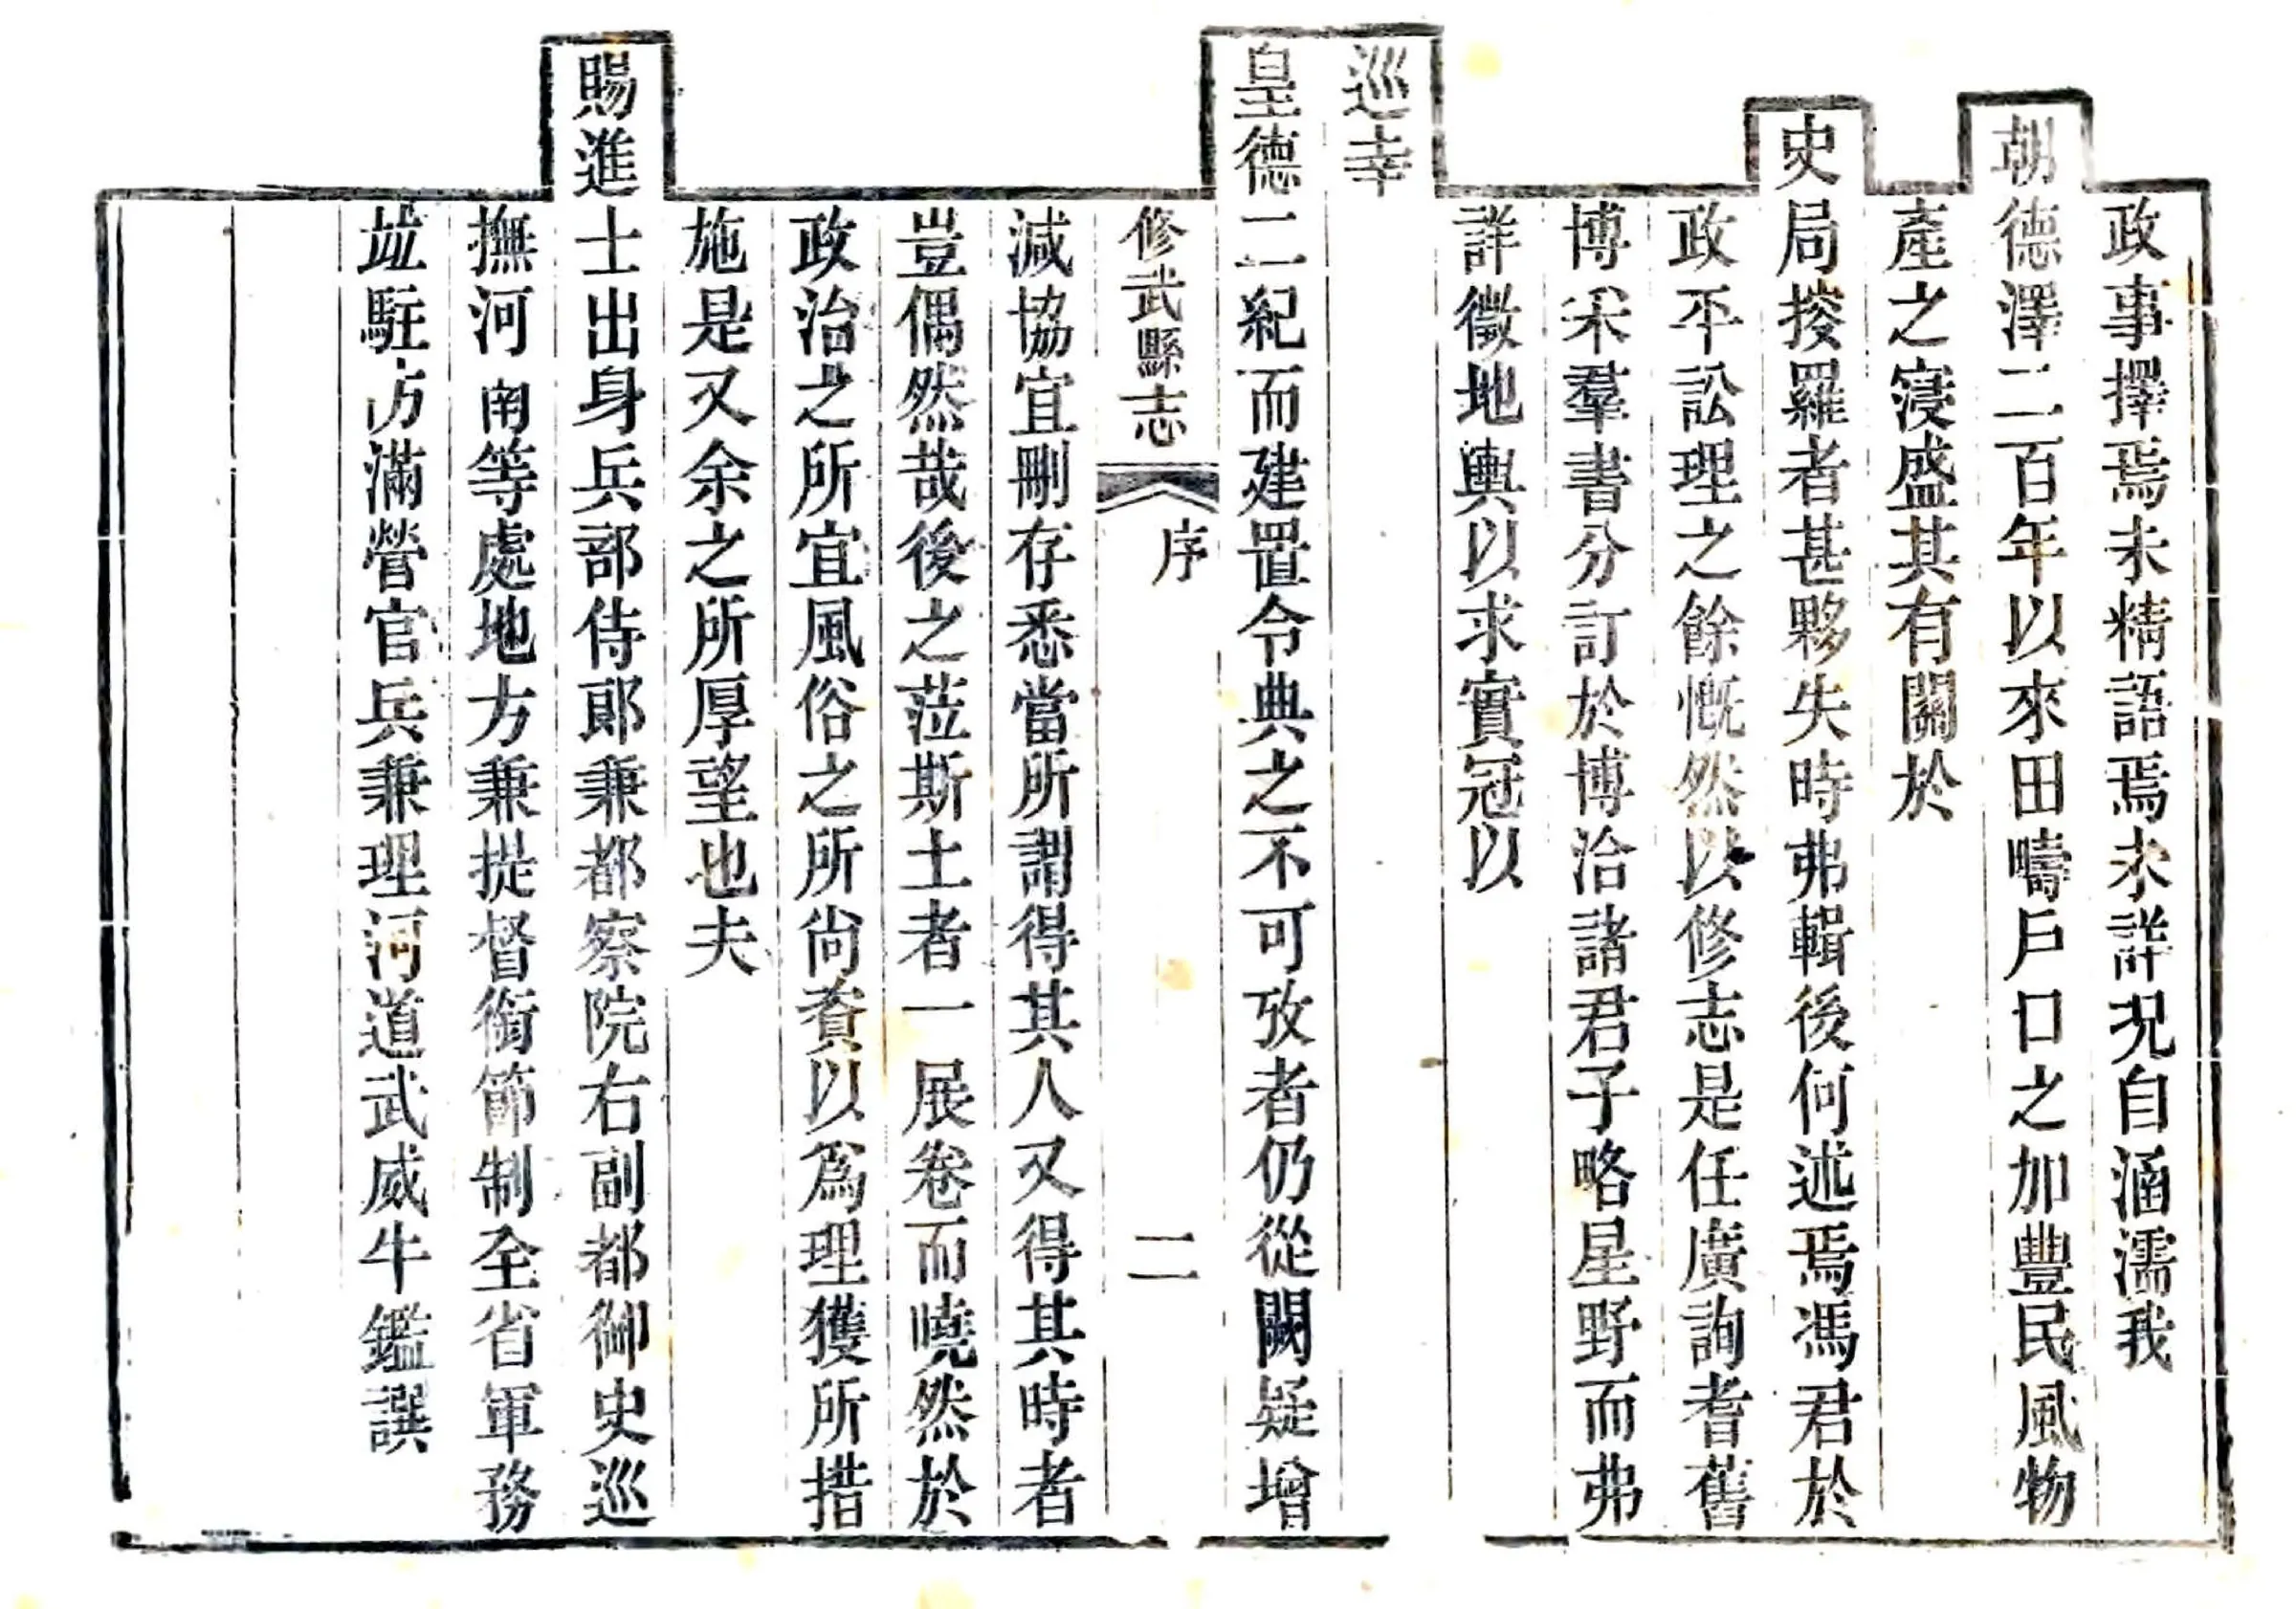 政事擇焉未精語焉未詳况自涵濡我
朝德澤二百年以來田疇戶口之加豐民風物
產之寖盛其有關於
史局搜羅者甚夥失時弗輯後何述焉馮君於
政平訟理之餘慨然以修志是任廣詢耆舊
博采羣書分訂於博洽諸君子略星野而弗
詳徵地輿以求實冠以
巡幸
皇德二紀而建置令典之不可攷者仍從闕疑增
修武縣志 序 二
減協宜刪存悉當所謂得其人又得其時者
豈偶然哉後之蒞斯土者一展卷而曉然於
政治之所宜風俗之所尙資以爲理獲所措
施是又余之所厚望也夫
賜進士出身兵部侍郎兼都察院右副都御史巡
撫河南等處地方兼提督銜節制全省軍務
並駐防滿營官兵兼理河道武威牛鑑譔